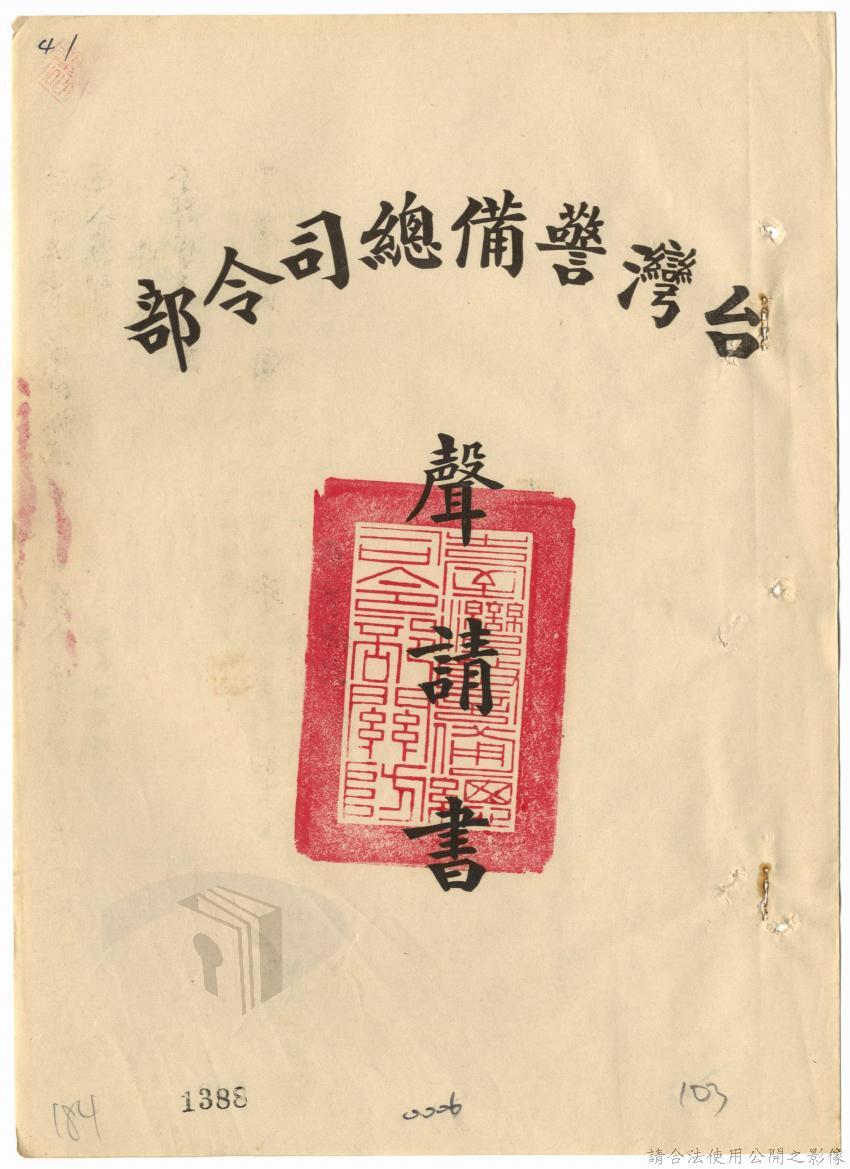 41
台灣警備總司令部
聲請書
臺灣警備總司令部關防
184
1388
0006
103
請合法使用公開之影像